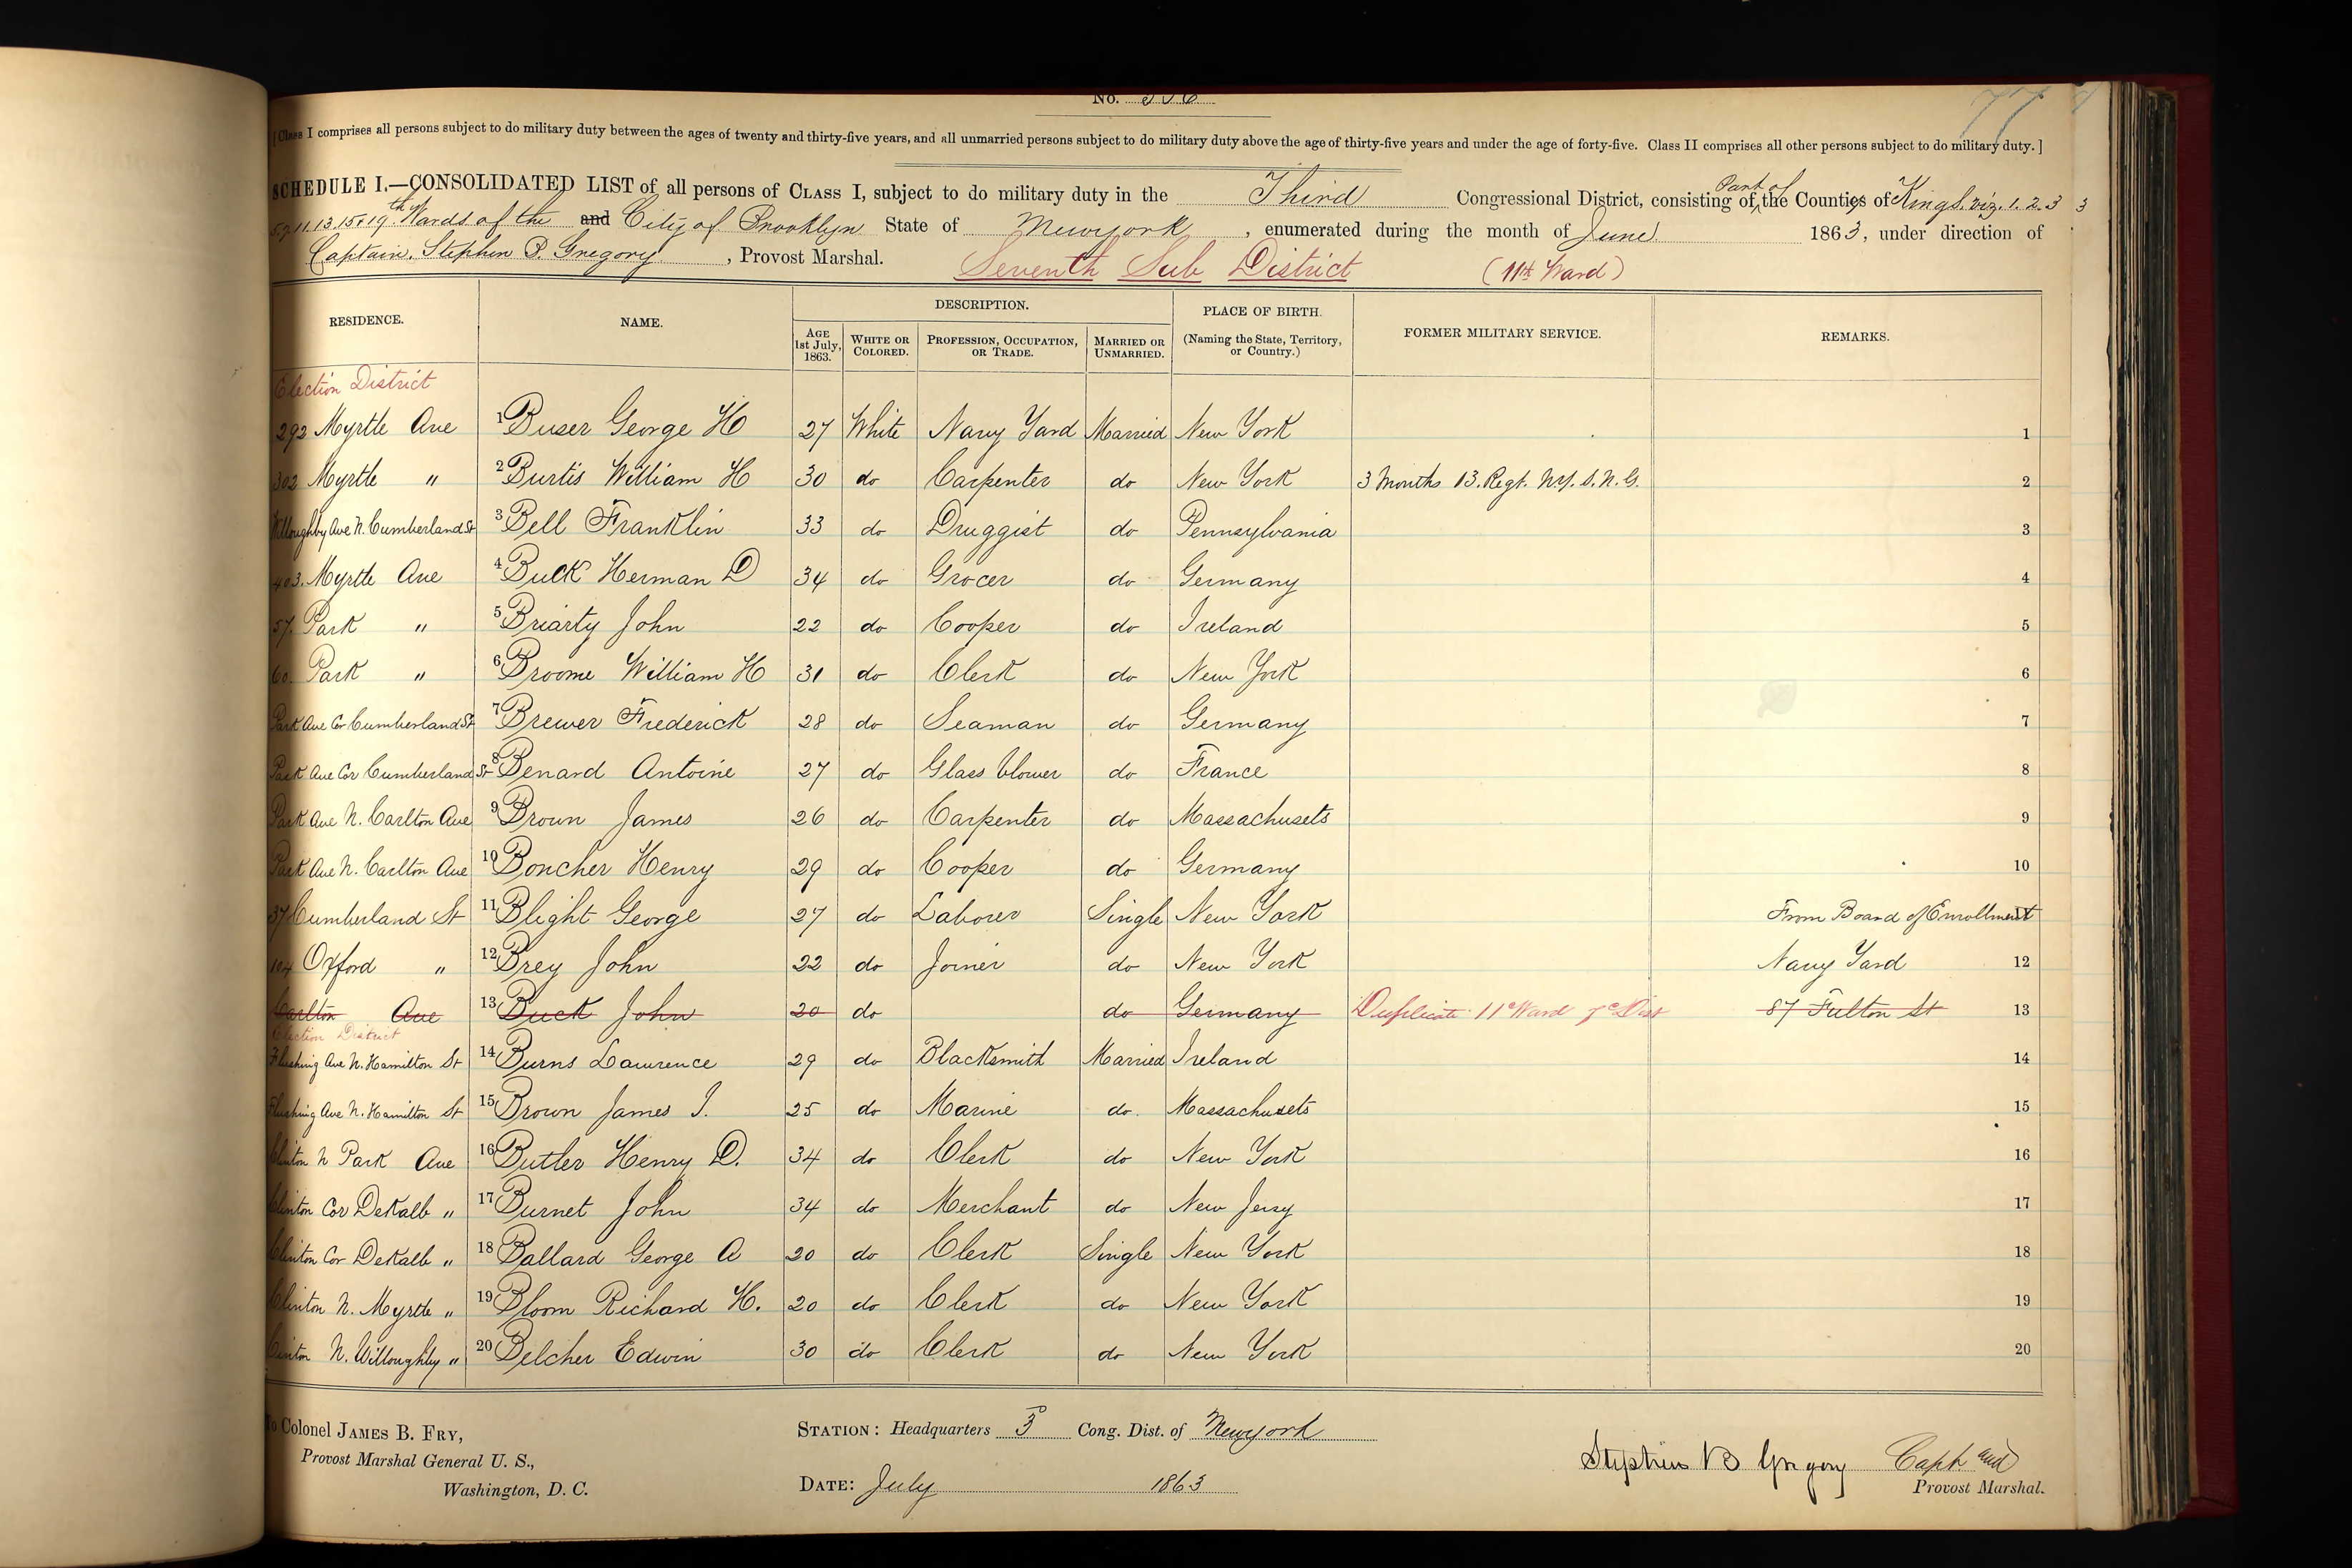 No. 356
77
[Class I comprises all persons subject to do military duty between the ages of twenty and thirty-five years, and all unmarried persons subject to do military duty above the age of thirty-five years and under the age of forty-five. Class II comprises all other persons subject to do military duty.]
SCHEDULE I.—CONSOLIDATED LIST of all persons of CLASS I, subject to do military duty in the Third Congressional District, consisting of Part of the Counties of Kings. viz. 1. 2. 3 3
5. 7. 11. 13. 15 & 19th Wards of the and City of Brooklyn State of New york, enumerated during the month of June 1863, under direction of
Captain. Stephen B. Gregory, Provost Marshal. Seventh Sub District (11th Ward)
RESIDENCE. NAME. DESCRIPTION. PLACE OF BIRTH. (Naming the State, Territory, or Country.) FORMER MILITARY SERVICE. REMARKS.
AGE 1st July, 1863. WHITE OR COLORED. PROFESSION, OCCUPATION, OR TRADE. MARRIED OR UNMARRIED.
Election District
292 Myrtle Ave 1 Buser George H 27 White Navy Yard Married New York 1
302 Myrtle " 2 Burtis William H 30 do Carpenter do New York 3 Months 13. Regt. N.Y. S. N. G. 2
Willoughby Ave N. Cumberland St 3 Bell Franklin 33 do Druggist do Pennsylvania 3
403. Myrtle Ave 4 Buck Herman D 34 do Grocer do Germany 4
57. Park " 5 Briarty John 22 do Cooper do Ireland 5
60. Park " 6 Broome William H 31 do Clerk do New York 6
Park Ave Cor Cumberland St 7 Brewer Frederick 28 do Seaman do Germany 7
Park Ave Cor Cumberland St 8 Benard Antoine 27 do Glass blower do France 8
Park Ave N. Carlton Ave 9 Brown James 26 do Carpenter do Massachusets 9
Park Ave N. Carlton Ave 10 Boncher Henry 29 do Cooper do Germany 10
37 Cumberland St 11 Blight George 27 do Laborer Single New York From Board of Enrollment 11
104 Oxford " 12 Brey John 22 do Joiner do New York Navy Yard 12
Carlton Ave 13 Buck John 20 do do Germany Duplicate 11th Ward 7th Dist 87 Fulton St 13
Election District
Flushing Ave N. Hamilton St 14 Burns Lawrence 29 do Blacksmith Married Ireland 14
Flushing Ave N. Hamilton St 15 Brown James J. 25 do Marine do. Massachusets 15
Clinton N Park Ave 16 Butler Henry D. 34 do Clerk do New York 16
Clinton Cor DeKalb " 17 Burnet John 34 do Merchant do New Jersy 17
Clinton Cor DeKalb " 18 Ballard George A 20 do Clerk Single New York 18
Clinton N. Myrtle " 19 Bloom Richard H. 20 do Clerk do New York 19
Clinton N. Willoughby " 20 Belcher Edwin 30 do Clerk do New York 20
To Colonel JAMES B. FRY,
Provost Marshal General U. S.,
Washington, D. C.
STATION: Headquarters 3d Cong. Dist. of New york
DATE: July 1863
Stephen B Gregory Capt and
Provost Marshal.